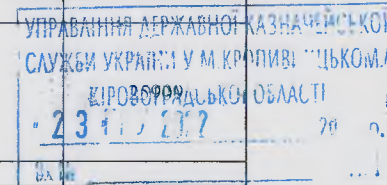 УПРАВЛІННЯ ДЕРЖАВНОЇ КАЗНАЧЕЙСЬКОЇ
СЛУЖБИ УКРАЇНИ У М.КРОПИВНИЦЬКОМУ
КІРОВОГРАДСЬКОЇ ОБЛАСТІ
23
20 р.
Вх №